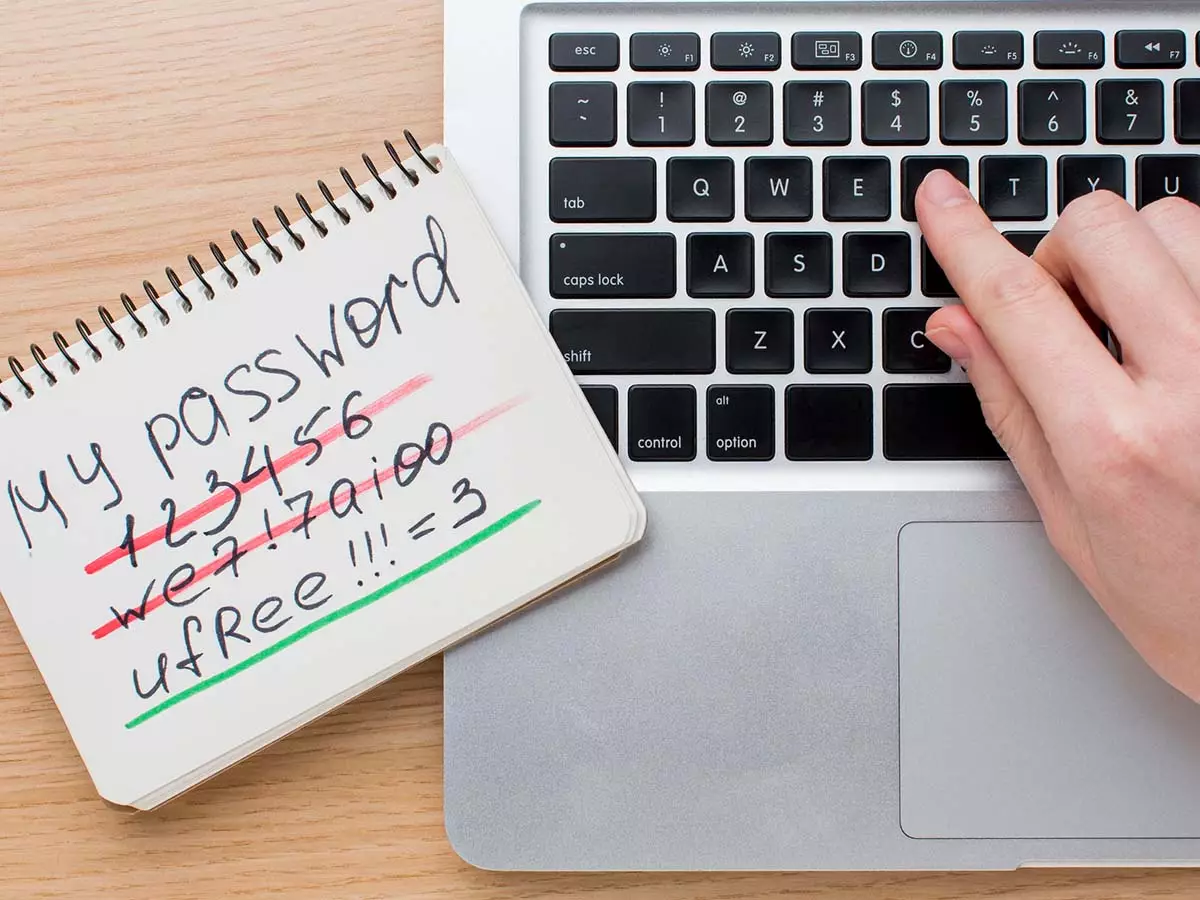 My password
123456
we7!7aioo
ufRee!!!=3
esc F1 F2 F3 F4 F5 F6 F7
~ ! @ # $ % ^ &
` 1 2 3 4 5 6 7
tab Q W E T Y U
caps lock A S D
shift Z X C
alt
control option